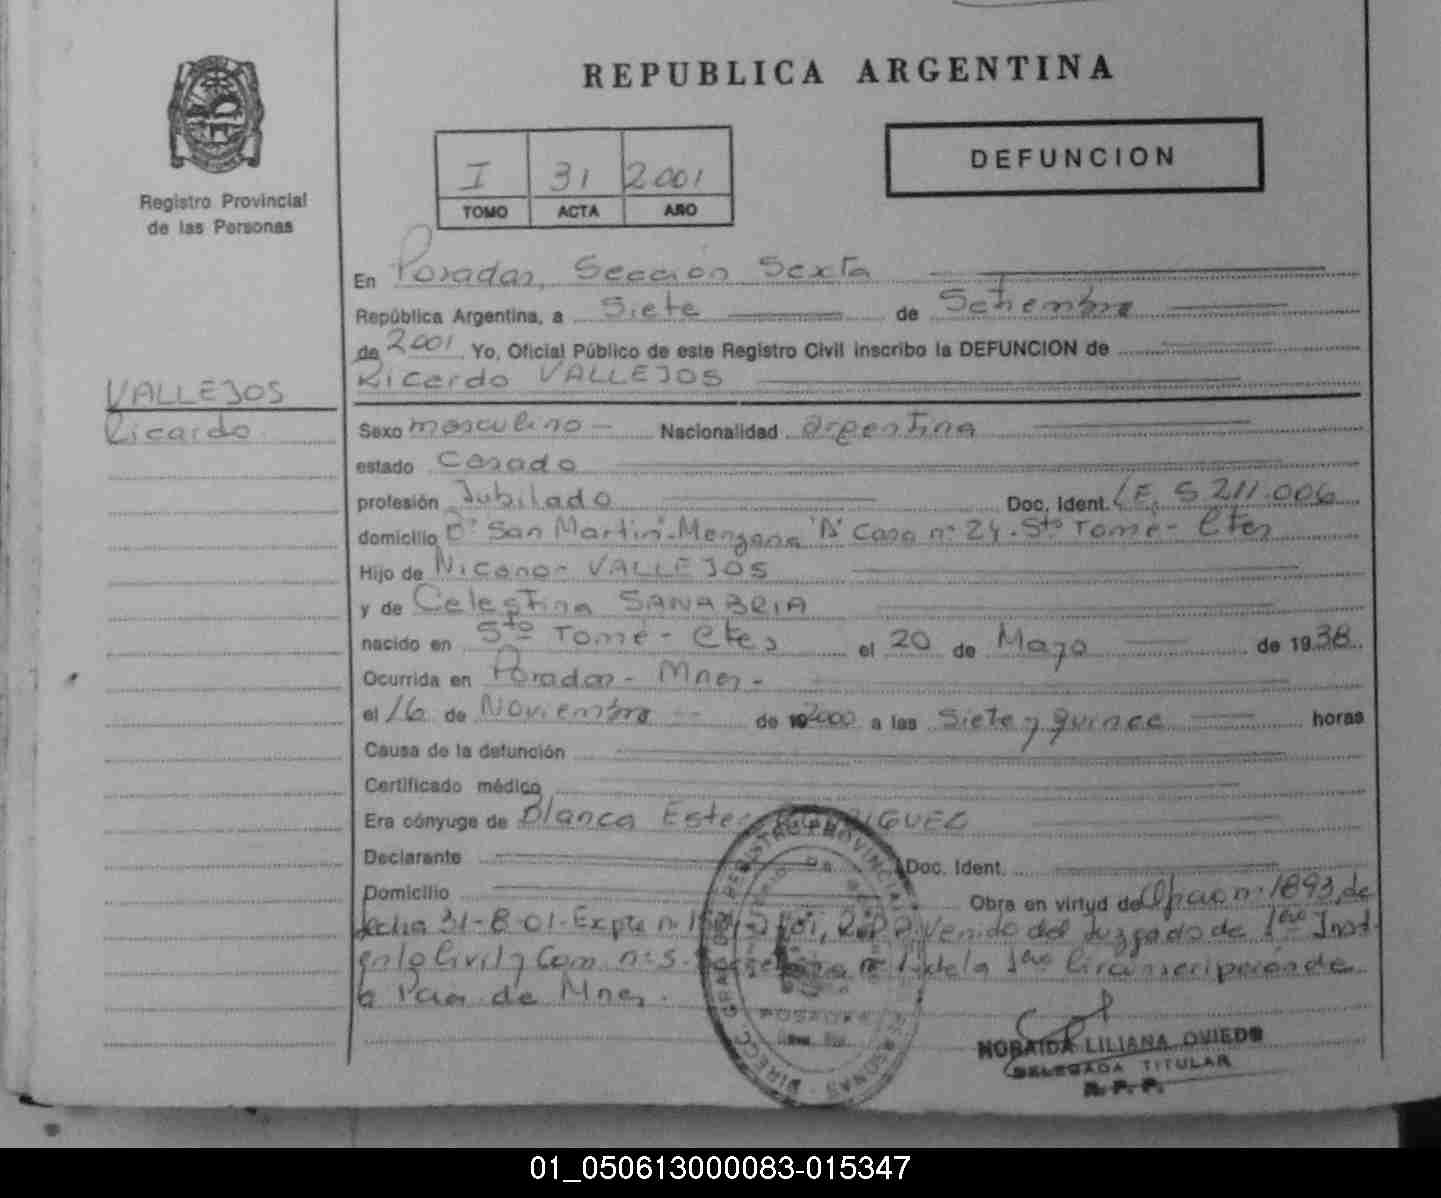 REPUBLICA ARGENTINA
DEFUNCION
I 31 2001
TOMO ACTA AÑO
Registro Provincial
de las Personas
En Posadas, Sección Sexta
República Argentina, a Siete de Setiembre
de 2001 Yo, Oficial Público de este Registro Civil inscribo la DEFUNCION de
Ricardo VALLEJOS
VALLEJOS
Ricardo
Sexo masculino Nacionalidad argentina
estado Casado
profesión Jubilado Doc. Ident. L.E. 5.211.006
domicilio Bº San Martin - Manzana "A" Casa nº 24 - Sto Tomé - Ctes
Hijo de Nicanor VALLEJOS
y de Celestina SANABRIA
nacido en Sto Tomé - Ctes el 20 de Mayo de 1938
Ocurrida en Posadas - Mnes -
el 16 de Noviembre de 2000 a las Siete y quince horas
Causa de la defunción
Certificado médico
Era cónyuge de Blanca Ester
Declarante Doc. Ident.
Domicilio Obra en virtud de Oficio nº 1893, de
fecha 31-8-01 - Expte nº Venido del Juzgado de 1era Inst.
en lo Civil y Com. nº 5 - de la 1era Circunscripción de
la Pcia de Mnes.
POSADAS
NORAIDA LILIANA OVIEDO
DELEGADA TITULAR
R. P. P.
01_050613000083-015347